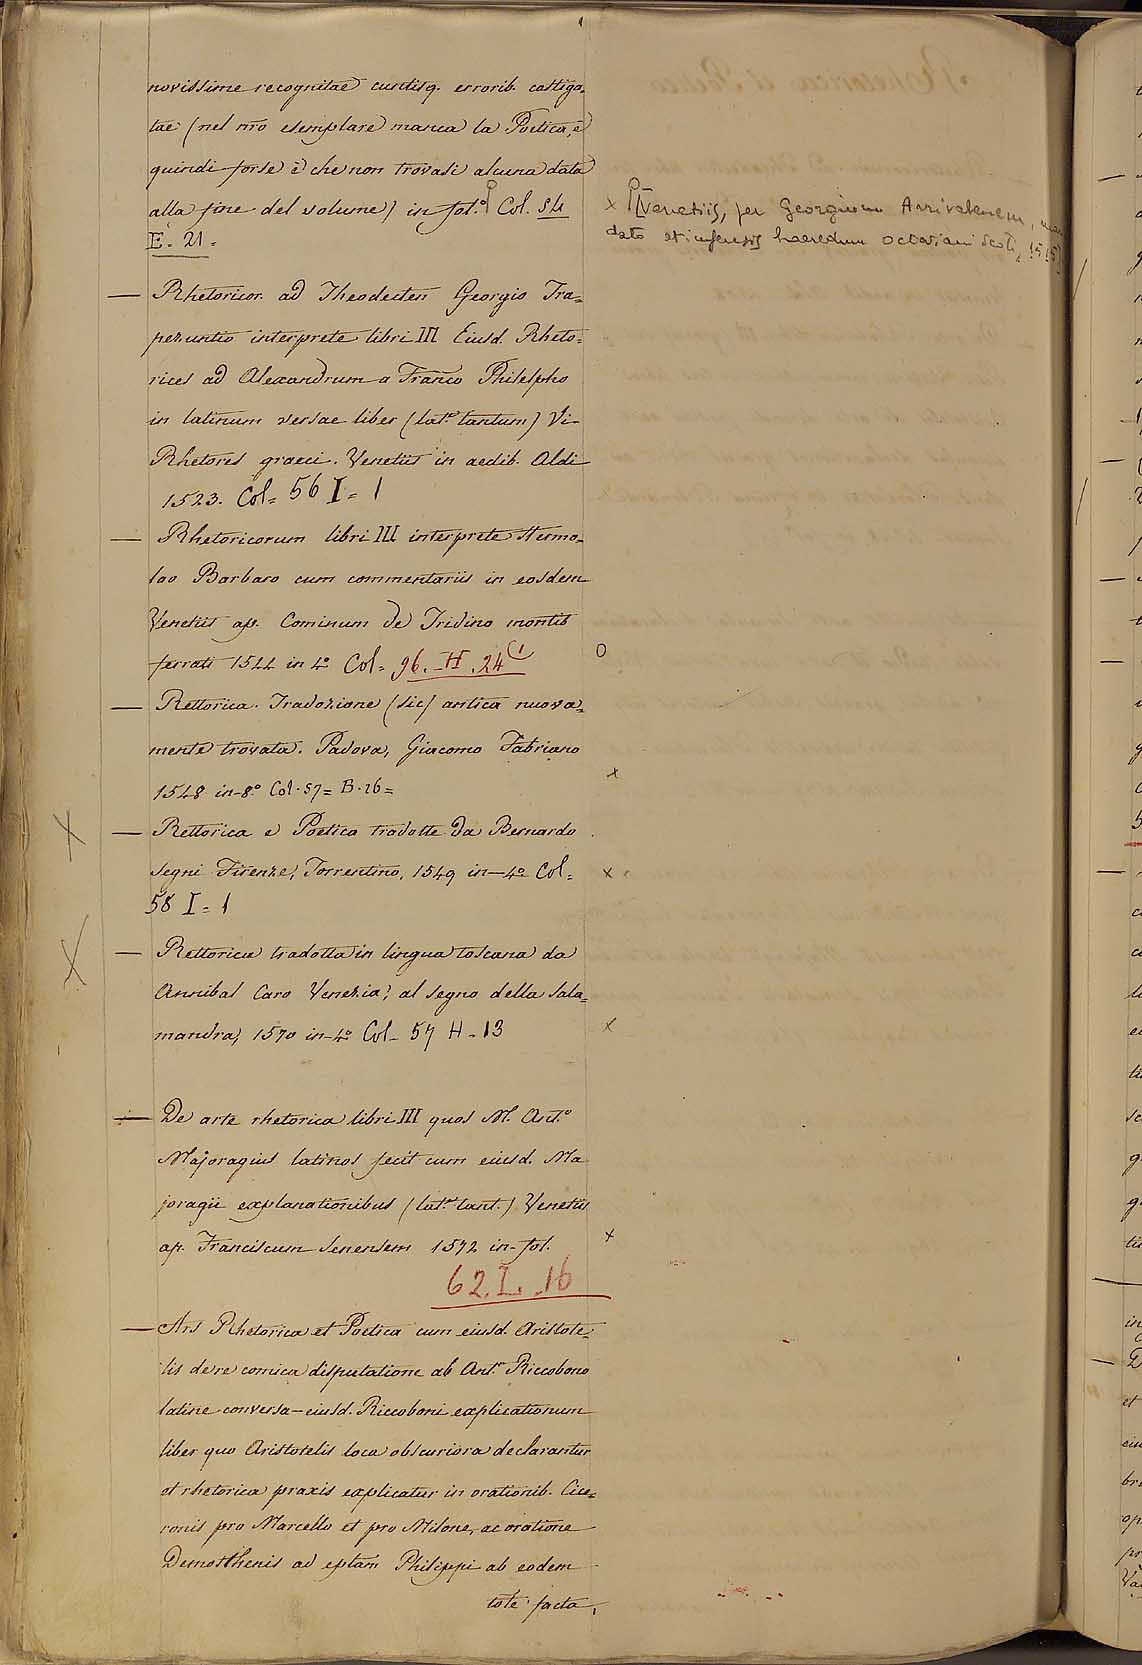 novissime recognitae cunctisq. errorib. castiga-
tae (nel nr̃o esemplare manca la Poetica, e
quindi forse è che non trovasi alcuna data
alla fine del volume) in fol.º Col. 54
E. 21.
x [Venetiis, per Georgium Arrivabenum, man
dato et impensis haeredum Octaviani Scoti, 1515]
— Rhetoricor. ad Theodecten Georgio Tra-
pezuntio interprete libri III Eiusd. Rheto-
rices ad Alexandrum a Franco Philelpho
in latinum versae liber (lat.e tantum) Vi.
Rhetores graeci. Venetiis in aedib. Aldi
1523. Col= 56 I= 1
— Rhetoricorum libri III interprete Hermo-
lao Barbaro cum commentariis in eosdem
Venetiis ap. Cominum de Tridino montis
ferrati 1544 in 4º Col= 96. H. 24 (1
O
— Rettorica. Tradozione (sic) antica nuova-
mente trovata. Padova, Giacomo Fabriano
1548 in-8º Col. 57= B. 26=
x
— Rettorica e Poetica tradotte da Bernardo
Segni Firenze, Torrentino, 1549 in-4º Col= x
58 I= 1
— Rettorica tradotta in lingua toscana da
Annibal Caro Venezia, al segno della Sala-
mandra, 1570 in-4º Col= 57 H-13 x
— De arte rhetorica libri III quos M. Ant.º
Majoragius latinos fecit cum eiusd. Ma
joragii explanationibus (lat.e tant.) Venetiis
ap. Franciscum Senensem 1572 in-fol. x
62. I. 16
— Ars Rhetorica et Poetica cum eiusd. Aristote-
lis de re comica disputatione ab Ant.º Riccobono
latine conversa – eiusd. Riccoboni explicationum
liber quo Aristotelis loca obscuriora declarantur
et rhetorica praxis explicatur in orationib. Cice-
ronis pro Marcello et pro Milone, ac oratione
Demosthenis ad eplam Philippi ab eodem
facta,